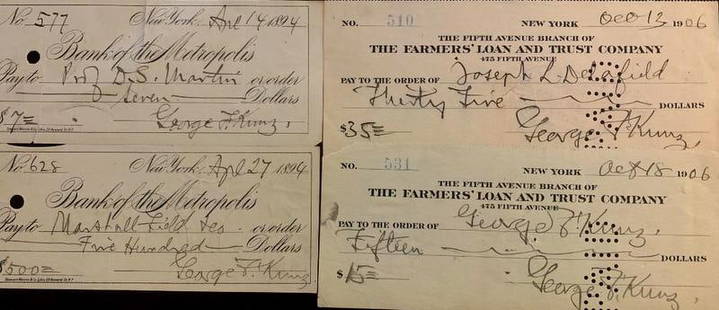 No. 577 New York Apl 14 1894
Bank of the Metropolis
Pay to Prof D. S. Martin or order
Seven Dollars
$7= George F. Kunz.
No. 628 New York Apl 27 1894
Bank of the Metropolis
Pay to Marshall Field or order
Five Hundred Dollars
$500= George F. Kunz
NO. 510 NEW YORK Oct 13 1906
THE FIFTH AVENUE BRANCH OF
THE FARMERS' LOAN AND TRUST COMPANY
475 FIFTH AVENUE
PAY TO THE ORDER OF Joseph L. Delafield
Thirty Five DOLLARS
$35= George F. Kunz.
NO. 531 NEW YORK Oct 18 1906
THE FIFTH AVENUE BRANCH OF
THE FARMERS' LOAN AND TRUST COMPANY
475 FIFTH AVENUE
PAY TO THE ORDER OF George F. Kunz.
Fifteen DOLLARS
$15= George F. Kunz.